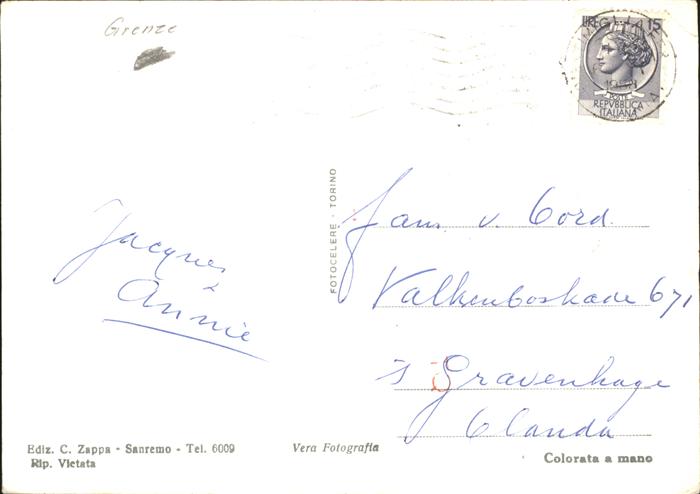 Grenze
LIRE 15
POSTE
REPVBBLICA
ITALIANA
FOTOCELERE - TORINO
Jacques
Annie
Fam. v. Cord.
Valkenboskade 671
's Gravenhage
Olanda
Ediz. C. Zappa - Sanremo - Tel. 6009
Rip. Vietata
Vera Fotografia
Colorata a mano